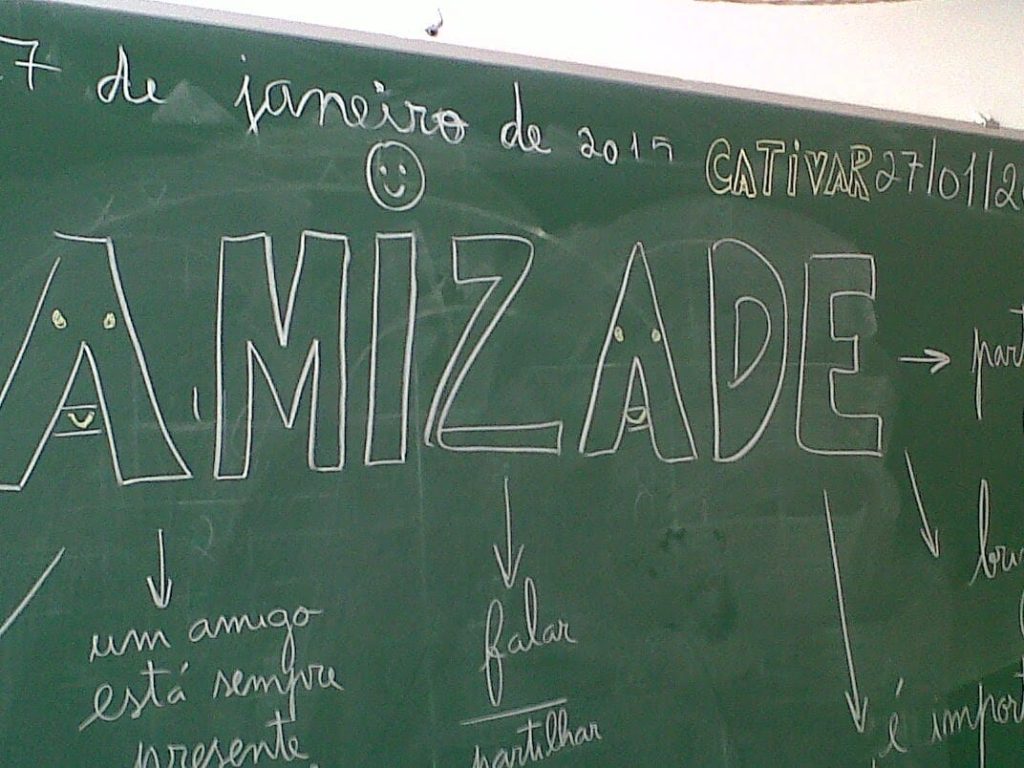 7 de janeiro de 2015
CATIVAR 27/01/20
AMIZADE
um amigo
está sempre
presente
falar
partilhar
é import